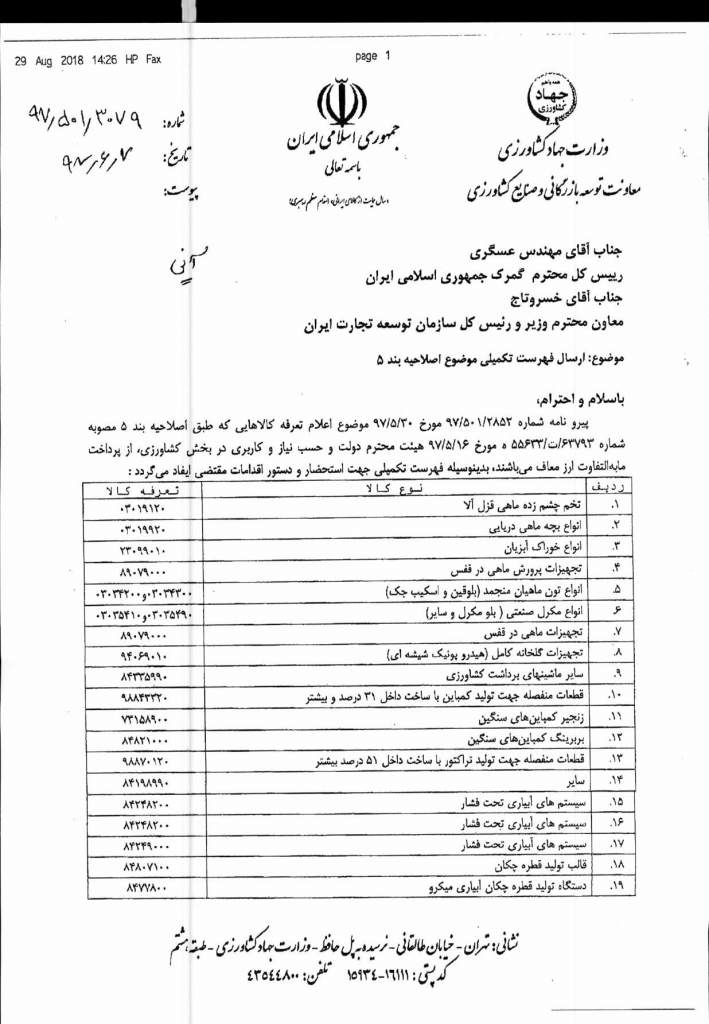 29 Aug 2018 14:26 HP Fax page 1
همه باهم
جهاد
کشاورزی
وزارت جهاد کشاورزی
معاونت توسعه بازرگانی و صنایع کشاورزی
جمهوری اسلامی ایران
باسمه تعالی
«سال حمایت از کالای ایرانی» (مقام معظم رهبری)
شماره: ۹۷٫۵۰۱٫۳۰۷۹
تاریخ: ۹۷٫۶٫۷
پیوست:
آنی
جناب آقای مهندس عسگری
رییس کل محترم گمرک جمهوری اسلامی ایران
جناب آقای خسروتاج
معاون محترم وزیر و رئیس کل سازمان توسعه تجارت ایران
موضوع: ارسال فهرست تکمیلی موضوع اصلاحیه بند ۵
باسلام و احترام،
پیرو نامه شماره ۹۷/۵۰۱/۲۸۵۲ مورخ ۹۷/۵/۳۰ موضوع اعلام تعرفه کالاهایی که طبق اصلاحیه بند ۵ مصوبه
شماره ۶۳۷۹۳/ت/۵۵۶۳۳ ه مورخ ۹۷/۵/۱۶ هیئت محترم دولت و حسب نیاز و کاربری در بخش کشاورزی، از پرداخت
مابه‌التفاوت ارز معاف می‌باشند، بدینوسیله فهرست تکمیلی جهت استحضار و دستور اقدامات مقتضی ایفاد می‌گردد :
ردیف نوع کالا تعرفه کالا
۱. تخم چشم زده ماهی قزل آلا ۰۳۰۱۹۱۲۰
۲. انواع بچه ماهی دریایی ۰۳۰۱۹۹۲۰
۳. انواع خوراک آبزیان ۲۳۰۹۹۰۱۰
۴. تجهیزات پرورش ماهی در قفس ۸۹۰۷۹۰۰۰
۵. انواع تون ماهیان منجمد (بلوفین و اسکیپ جک) ۰۳۰۳۴۳۰۰و۰۳۰۳۴۲۰۰
۶. انواع مکرل صنعتی ( بلو مکرل و سایر) ۰۳۰۳۵۴۹۰و۰۳۰۳۵۴۱۰
۷. تجهیزات ماهی در قفس ۸۹۰۷۹۰۰۰
۸. تجهیزات گلخانه کامل (هیدرو پونیک شیشه ای) ۹۴۰۶۹۰۱۰
۹. سایر ماشینهای برداشت کشاورزی ۸۴۳۳۵۹۹۰
۱۰. قطعات منفصله جهت تولید کمباین با ساخت داخل ۳۱ درصد و بیشتر ۹۸۸۴۳۳۲۰
۱۱. زنجیر کمباین‌های سنگین ۷۳۱۵۸۹۰۰
۱۲. بربرینگ کمباین‌های سنگین ۸۴۸۲۱۰۰۰
۱۳. قطعات منفصله جهت تولید تراکتور با ساخت داخل ۵۱ درصد بیشتر ۹۸۸۷۰۱۲۰
۱۴. سایر ۸۴۱۹۸۹۹۰
۱۵. سیستم های آبیاری تحت فشار ۸۴۲۴۸۲۰۰
۱۶. سیستم های آبیاری تحت فشار ۸۴۲۴۸۲۰۰
۱۷. سیستم های آبیاری تحت فشار ۸۴۲۴۹۰۰۰
۱۸. قالب تولید قطره چکان ۸۴۸۰۷۱۰۰
۱۹. دستگاه تولید قطره چکان آبیاری میکرو ۸۴۷۷۸۰۰۰
نشانی: تهران - خیابان طالقانی - نرسیده به پل حافظ - وزارت جهاد کشاورزی - طبقه هشتم
کد پستی: ۱۶۱۱۱-۱۵۹۳۴ تلفن: ۴۳۵۴۴۸۰۰